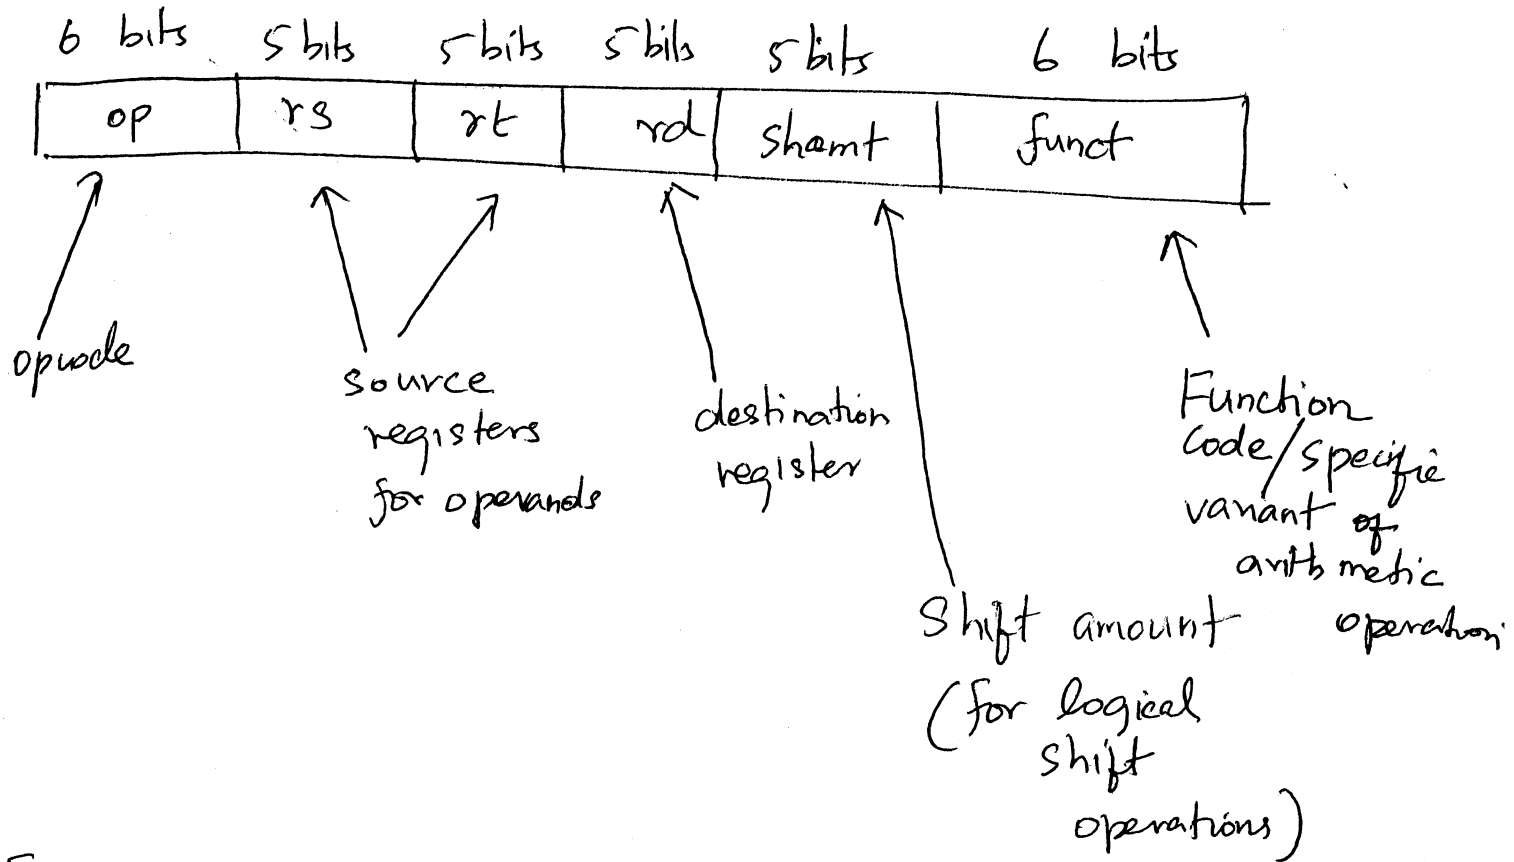 6 bits 5 bits 5 bits 5 bits 5 bits 6 bits
op rs rt rd shamt funct
opcode
source
registers
for operands
destination
register
Shift amount
(for logical
shift
operations)
Function
code/specific
variant of
arithmetic
operation